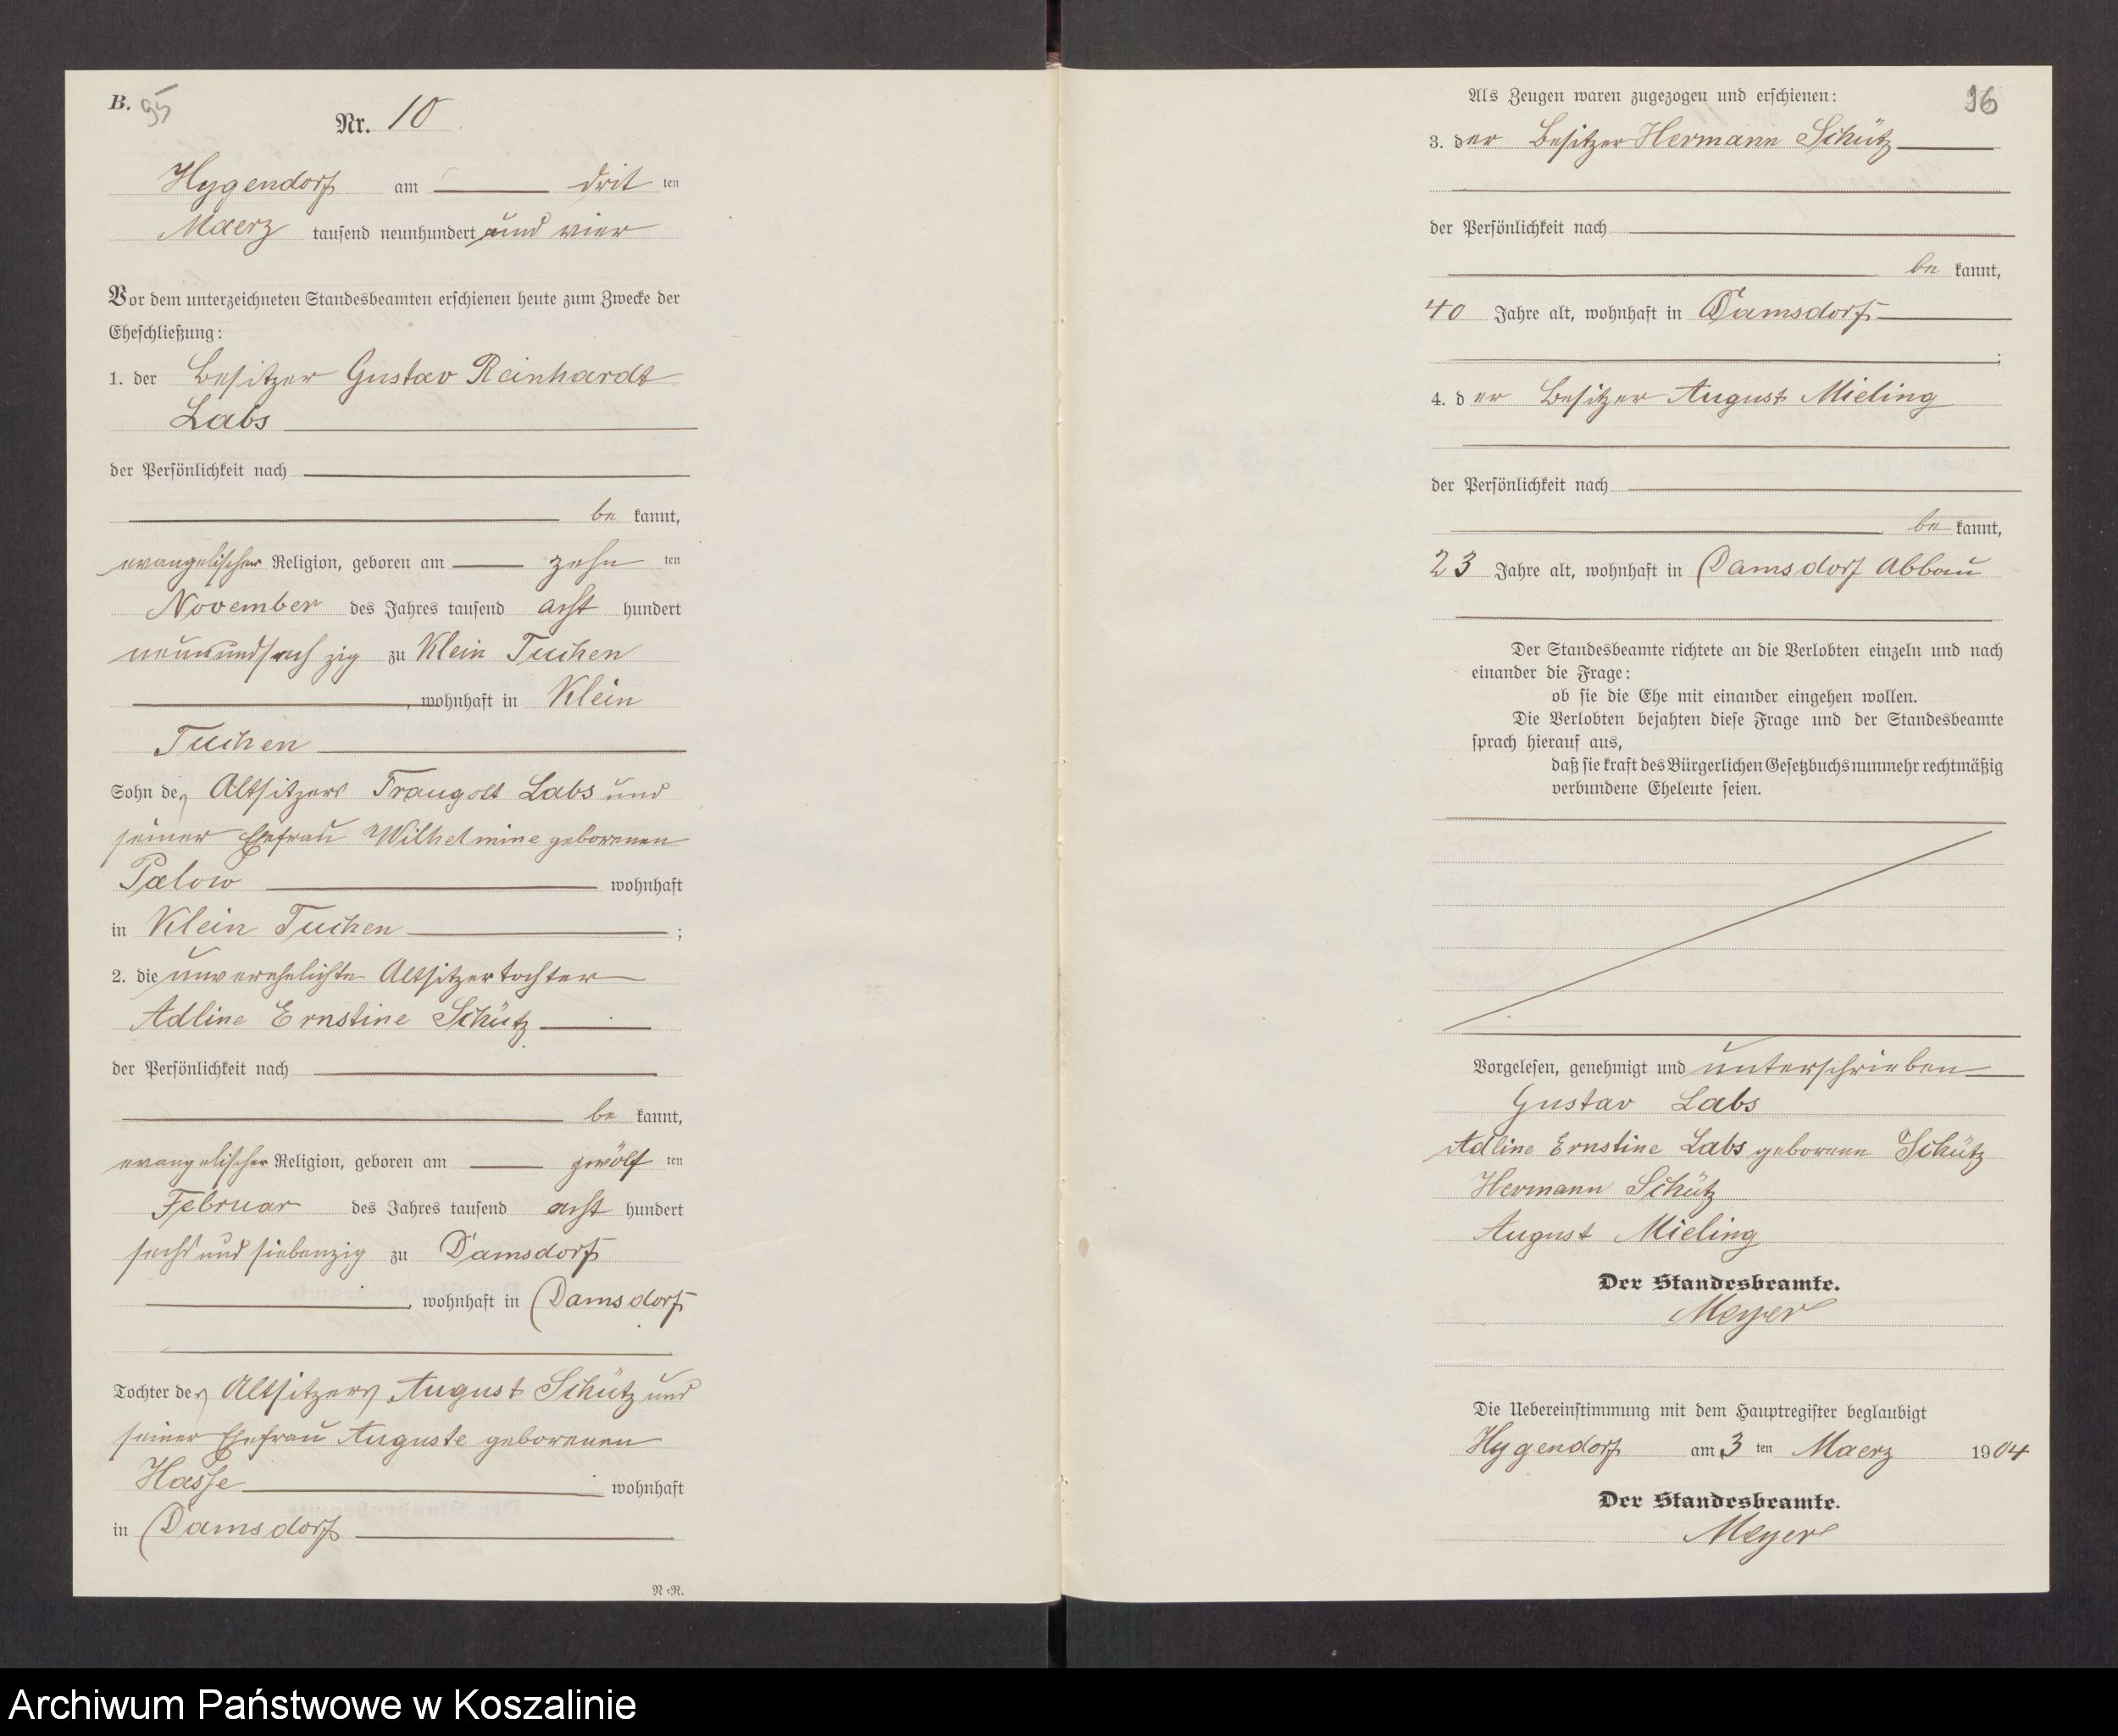 B. 95
Nr. 10
Hygendorf am drit ten
Maerz tausend neunhundert und vier
Vor dem unterzeichneten Standesbeamten erschienen heute zum Zwecke der
Eheschließung:
1. der Besitzer Gustav Reinhardt
Labs
der Persönlichkeit nach
be kannt,
evangelischer Religion, geboren am zehn ten
November des Jahres tausend acht hundert
neunundsechzig zu Klein Tuchen
, wohnhaft in Klein
Tuchen
Sohn des Altsitzers Traugott Labs und
seiner Ehefrau Wilhelmine geborenen
Palow wohnhaft
in Klein Tuchen ;
2. die unverehelichte Altsitzertochter
Adline Ernstine Schütz
der Persönlichkeit nach
be kannt,
evangelischer Religion, geboren am zwölf ten
Februar des Jahres tausend acht hundert
sechs und siebenzig zu Damsdorf
, wohnhaft in Damsdorf
Tochter des Altsitzers August Schütz und
seiner Ehefrau Auguste geborenen
Hasse wohnhaft
in Damsdorf
N=N.
96
Als Zeugen waren zugezogen und erschienen:
3. der Besitzer Hermann Schütz
der Persönlichkeit nach
be kannt,
40 Jahre alt, wohnhaft in Damsdorf
;
4. der Besitzer August Mieling
der Persönlichkeit nach
be kannt,
23 Jahre alt, wohnhaft in Damsdorf Abbau
Der Standesbeamte richtete an die Verlobten einzeln und nach
einander die Frage:
ob sie die Ehe mit einander eingehen wollen.
Die Verlobten bejahten diese Frage und der Standesbeamte
sprach hierauf aus,
daß sie kraft des Bürgerlichen Gesetzbuchs nunmehr rechtmäßig
verbundene Eheleute seien.
Vorgelesen, genehmigt und unterschrieben
Gustav Labs
Adline Ernstine Labs geborene Schütz
Hermann Schütz
August Mieling
Der Standesbeamte.
Meyer
Die Uebereinstimmung mit dem Hauptregister beglaubigt
Hygendorf am 3 ten Maerz 1904
Der Standesbeamte.
Meyer
Archiwum Państwowe w Koszalinie